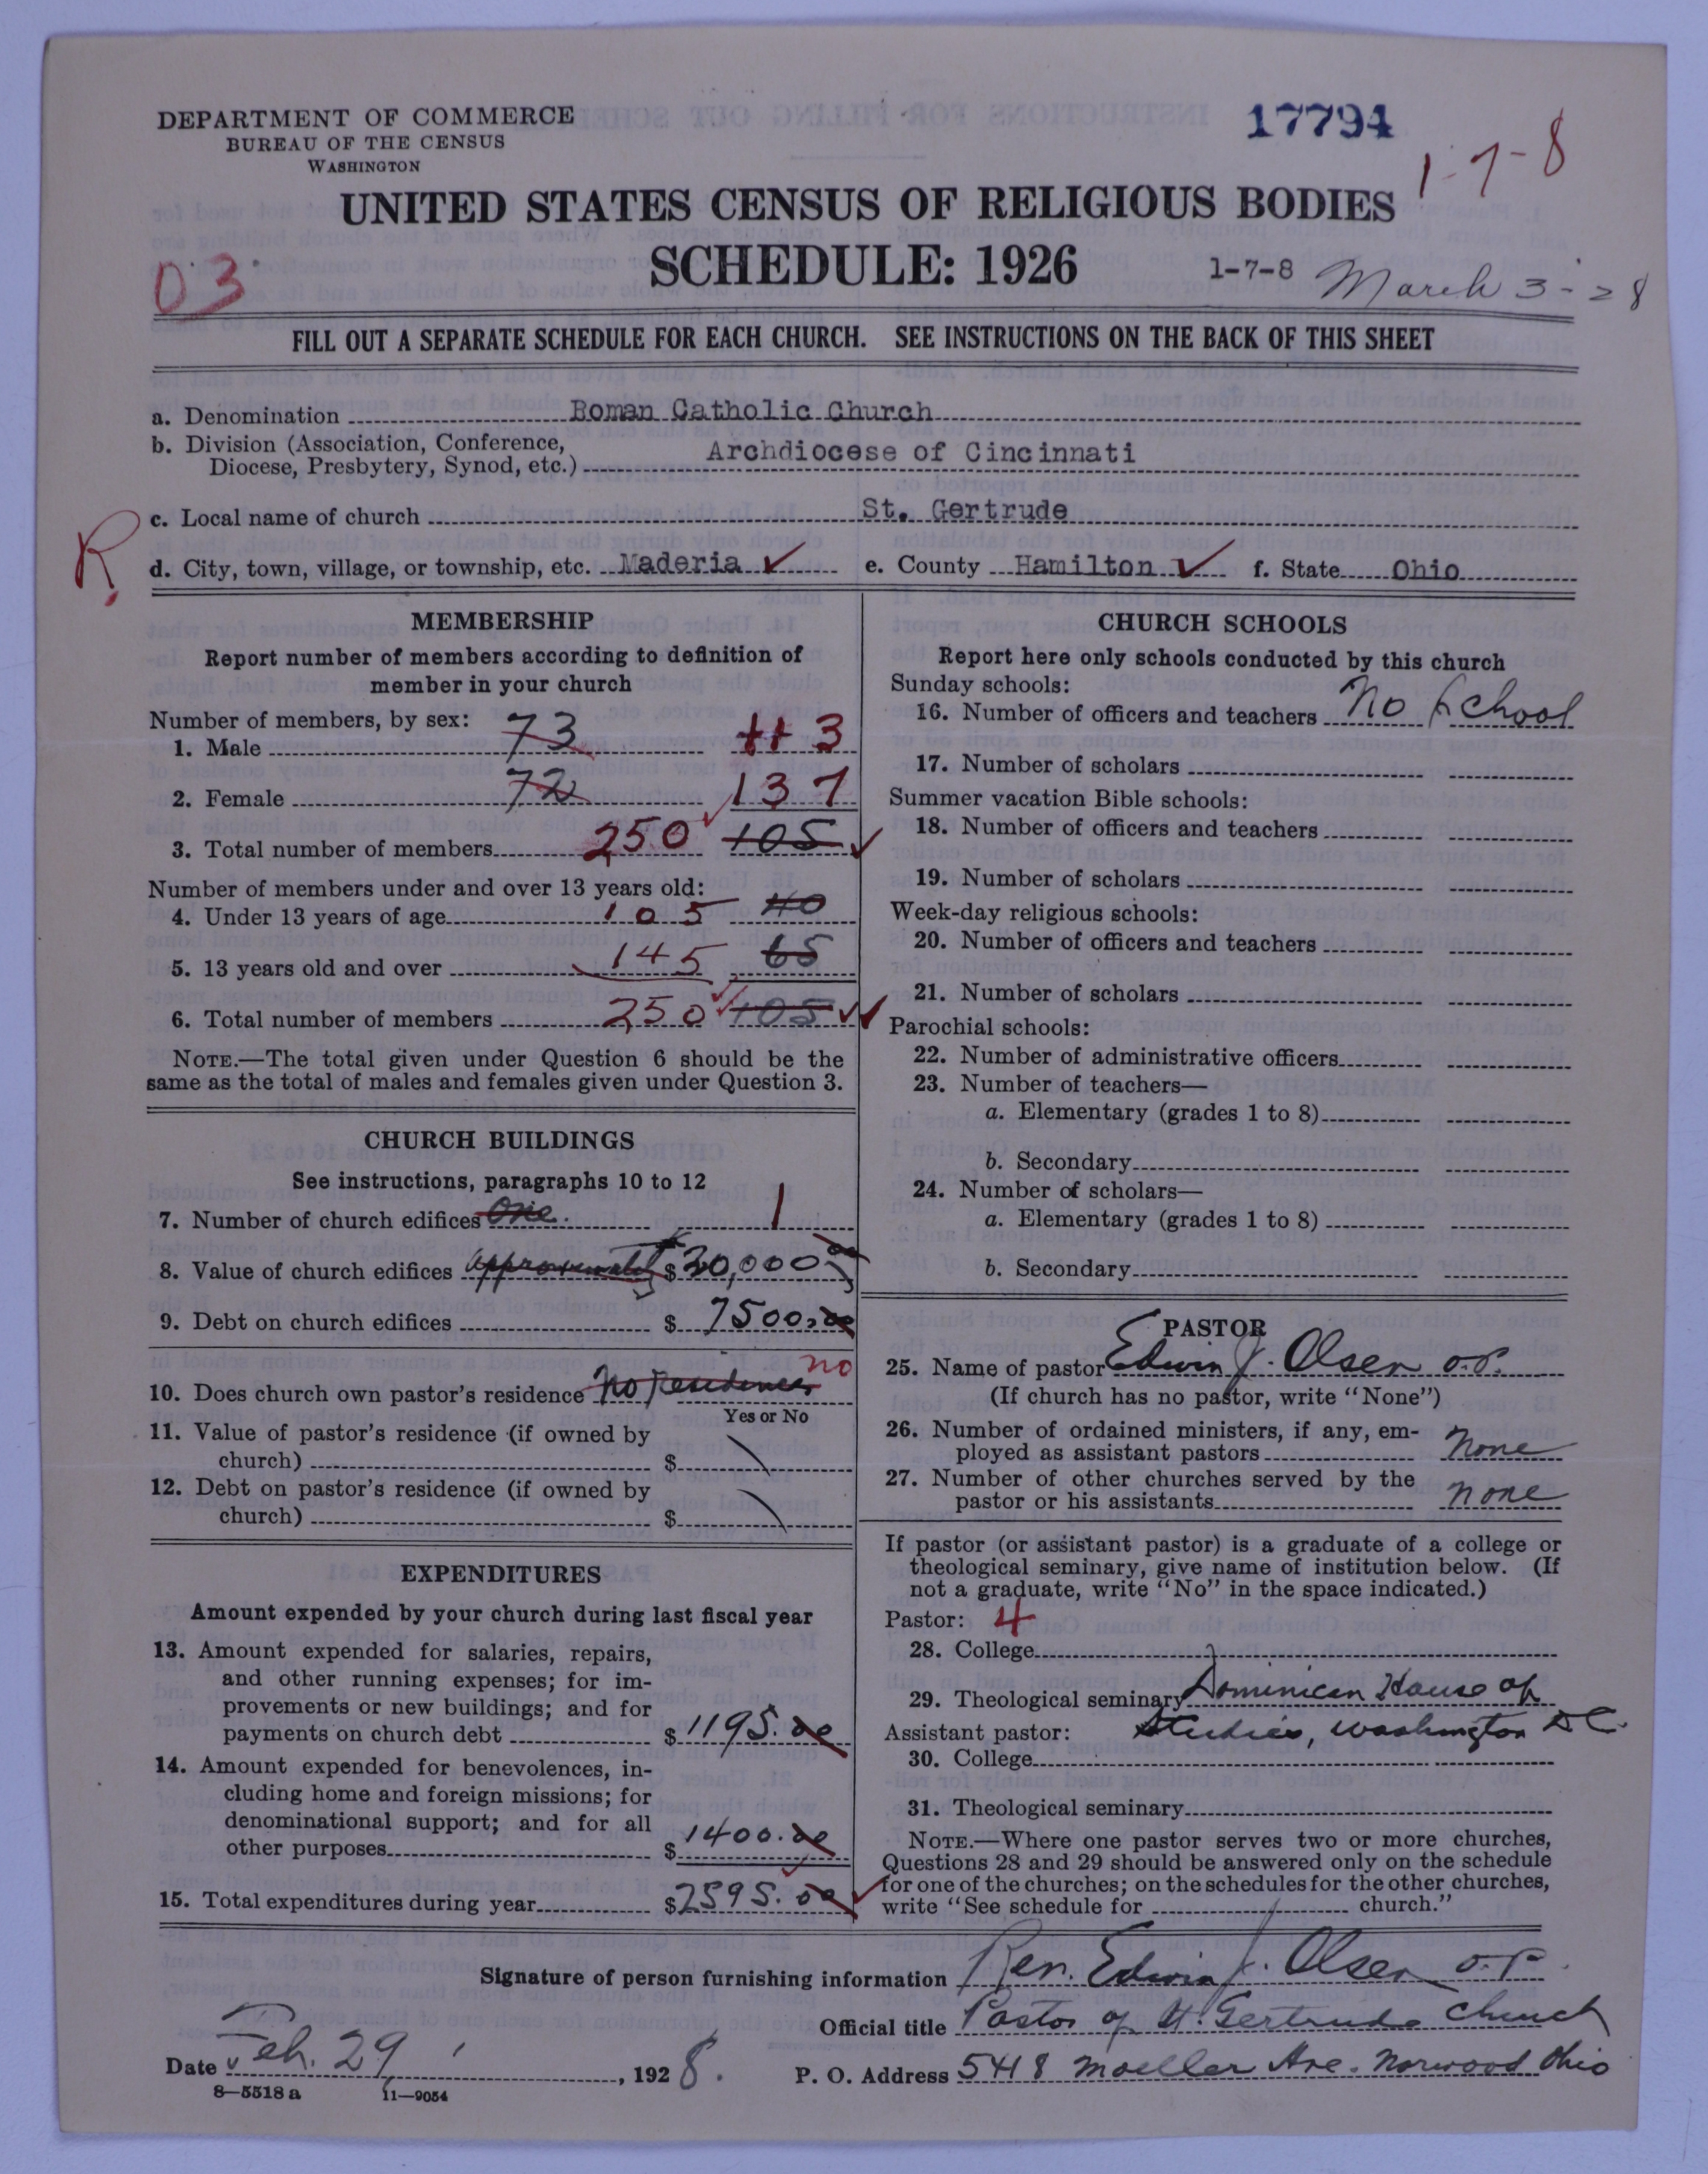 DEPARTMENT OF COMMERCE
BUREAU OF THE CENSUS
WASHINGTON
17794
1-7-8
UNITED STATES CENSUS OF RELIGIOUS BODIES
SCHEDULE: 1926
03
1-7-8
March 3-28
FILL OUT A SEPARATE SCHEDULE FOR EACH CHURCH. SEE INSTRUCTIONS ON THE BACK OF THIS SHEET
a. Denomination Roman Catholic Church
b. Division (Association, Conference,
Diocese, Presbytery, Synod, etc.) Archdiocese of Cincinnati
c. Local name of church St. Gertrude
R
d. City, town, village, or township, etc. Maderia ✓ e. County Hamilton ✓ f. State Ohio
MEMBERSHIP
Report number of members according to definition of
member in your church
Number of members, by sex:
1. Male 73 113
2. Female 72 137
3. Total number of members 250 105
Number of members under and over 13 years old:
4. Under 13 years of age 105 40
5. 13 years old and over 145 65
6. Total number of members 250 105
NOTE.—The total given under Question 6 should be the
same as the total of males and females given under Question 3.
CHURCH BUILDINGS
See instructions, paragraphs 10 to 12
7. Number of church edifices One. 1
8. Value of church edifices approximately $30,000.00
9. Debt on church edifices $7500.00
10. Does church own pastor's residence No residence no
Yes or No
11. Value of pastor's residence (if owned by
church) $
12. Debt on pastor's residence (if owned by
church) $
EXPENDITURES
Amount expended by your church during last fiscal year
13. Amount expended for salaries, repairs,
and other running expenses; for im-
provements or new buildings; and for
payments on church debt $1195.00
14. Amount expended for benevolences, in-
cluding home and foreign missions; for
denominational support; and for all
other purposes $1400.00
15. Total expenditures during year $2595.00
CHURCH SCHOOLS
Report here only schools conducted by this church
Sunday schools:
16. Number of officers and teachers No School
17. Number of scholars
Summer vacation Bible schools:
18. Number of officers and teachers
19. Number of scholars
Week-day religious schools:
20. Number of officers and teachers
21. Number of scholars
Parochial schools:
22. Number of administrative officers
23. Number of teachers—
a. Elementary (grades 1 to 8)
b. Secondary
24. Number of scholars—
a. Elementary (grades 1 to 8)
b. Secondary
PASTOR
25. Name of pastor Edwin J. Olsen o.p.
(If church has no pastor, write "None")
26. Number of ordained ministers, if any, em-
ployed as assistant pastors none
27. Number of other churches served by the
pastor or his assistants none
If pastor (or assistant pastor) is a graduate of a college or
theological seminary, give name of institution below. (If
not a graduate, write "No" in the space indicated.)
Pastor: 4
28. College
29. Theological seminary Dominican House of
Assistant pastor: Studies, Washington D.C.
30. College
31. Theological seminary
NOTE.—Where one pastor serves two or more churches,
Questions 28 and 29 should be answered only on the schedule
for one of the churches; on the schedules for the other churches,
write "See schedule for church."
Signature of person furnishing information Rev. Edwin J. Olsen o.p.
Official title Pastor of St. Gertrude Church
Date Feb. 29, 1928. P. O. Address 5418 Moeller Ave. Norwood Ohio
8—5518 a 11—9054